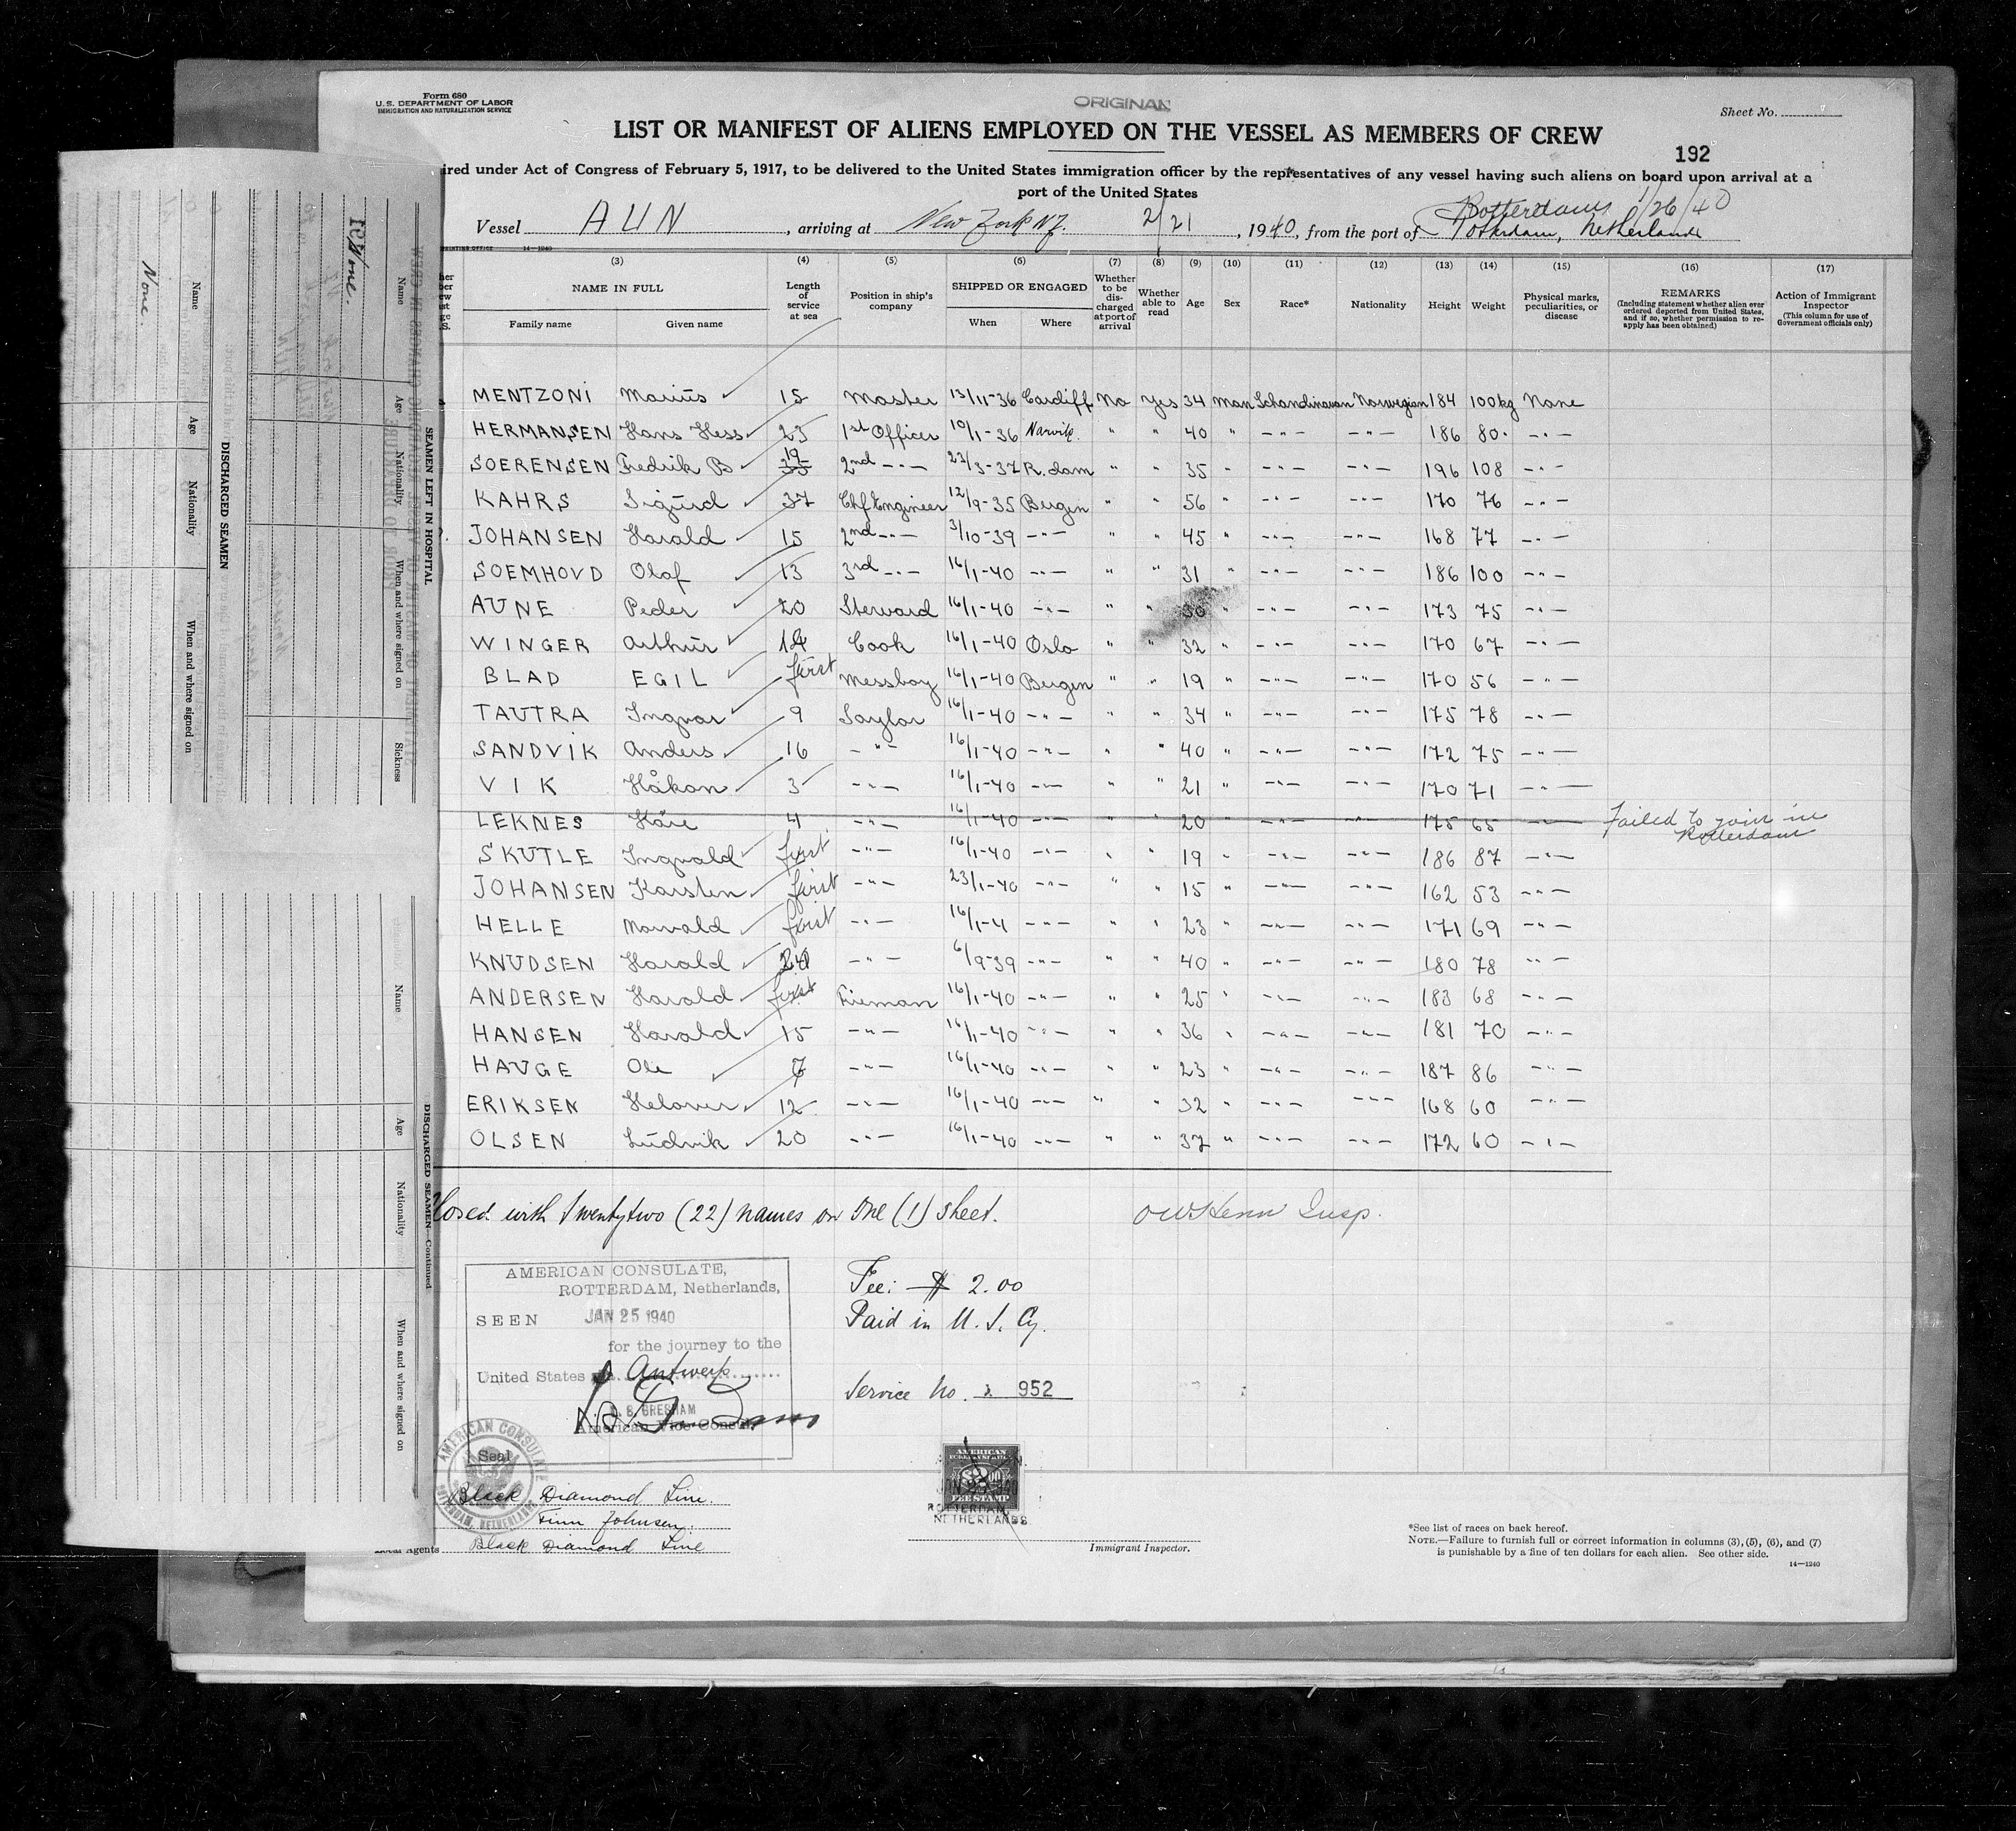 Form 680
U.S. DEPARTMENT OF LABOR
IMMIGRATION AND NATURALIZATION SERVICE
ORIGINAL
Sheet No.
LIST OR MANIFEST OF ALIENS EMPLOYED ON THE VESSEL AS MEMBERS OF CREW
192
ired under Act of Congress of February 5, 1917, to be delivered to the United States immigration officer by the representatives of any vessel having such aliens on board upon arrival at a
port of the United States
Rotterdam 1/26/40
Vessel AUN, arriving at New York NY. 2/21, 1940, from the port of Rotterdam, Netherlands
14—1240
(3) (4) (5) (6) (7) (8) (9) (10) (11) (12) (13) (14) (15) (16) (17)
NAME IN FULL Family name Given name
Length of service at sea
Position in ship's company
SHIPPED OR ENGAGED When Where
Whether to be discharged at port of arrival
Whether able to read
Age Sex Race* Nationality Height Weight
Physical marks, peculiarities, or disease
REMARKS (Including statement whether alien ever ordered deported from United States, and if so, whether permission to reapply has been obtained)
Action of Immigrant Inspector (This column for use of Government officials only)
MENTZONI Marius 15 Master 13/11-36 Cardiff No Yes 34 Man Schandinavan Norwegian 184 100kg None
HERMANSEN Hans Hess 23 1st Officer 10/1-36 Narvik " " 40 " -"- -"- 186 80 -"-
SOERENSEN Fredrik B 19 2nd -"- 23/3-37 R.dam " " 35 " -"- -"- 196 108 -"-
KAHRS Sigurd 37 Chf Engineer 12/9-35 Bergen " " 56 " -"- -"- 170 76 -"-
JOHANSEN Harald 15 2nd -"- 3/10-39 -"- " " 45 " -"- -"- 168 77 -"-
SOEMHOVD Olaf 13 3rd -"- 16/1-40 -"- " " 31 " -"- -"- 186 100 -"-
AUNE Peder 20 Steward 16/1-40 -"- " " 30 " -"- -"- 173 75 -"-
WINGER Arthur 14 Cook 16/1-40 Oslo " " 32 " -"- -"- 170 67 -"-
BLAD EGIL first Messboy 16/1-40 Bergen " " 19 " -"- -"- 170 56 -"-
TAUTRA Ingvar 9 Saylor 16/1-40 -"- " " 34 " -"- -"- 175 78 -"-
SANDVIK Anders 16 -"- 16/1-40 -"- " " 40 " -"- -"- 172 75 -"-
VIK Håkon 3 -"- 16/1-40 -"- " " 21 " -"- -"- 170 71 -"-
LEKNES Kåre 4 -"- 16/1-40 -"- " " 20 " -"- -"- 175 65 -"- Failed to join in Rotterdam
SKUTLE Ingvald first -"- 16/1-40 -"- " " 19 " -"- -"- 186 87 -"-
JOHANSEN Karsten first -"- 23/1-40 -"- " " 15 " -"- -"- 162 53 -"-
HELLE first -"- 16/1-4 -"- " " 23 " -"- -"- 171 69 -"-
KNUDSEN Harald -"- 6/9-39 -"- " " 40 " -"- -"- 180 78 -"-
ANDERSEN Harald first Fireman 16/1-40 -"- " " 25 " -"- -"- 183 68 -"-
HANSEN Harald 15 -"- 16/1-40 -"- " " 36 " -"- -"- 181 70 -"-
HAUGE Ole 7 -"- 16/1-40 -"- " " 23 " -"- -"- 187 86 -"-
ERIKSEN 12 -"- 16/1-40 -"- " " 32 " -"- -"- 168 60 -"-
OLSEN Ludvik 20 -"- 16/1-40 -"- " " 37 " -"- -"- 172 60 -"-
losed with twentytwo (22) names on one (1) sheet.
Insp.
AMERICAN CONSULATE,
ROTTERDAM, Netherlands,
SEEN JAN 25 1940
for the journey to the
United States Antwerp
GRESHAM
American Vice Consul
Seal
AMERICAN CONSULATE ROTTERDAM, NETHERLANDS
Fee: $ 2.00
Paid in U.S. Cy.
Service No. 952
AMERICAN
FOREIGN SERVICE
$2.00
FEE STAMP
ROTTERDAM
NETHERLANDS
Black Diamond Line.
Finn Johnsen.
Agents Black Diamond Line
Immigrant Inspector.
*See list of races on back hereof.
NOTE.—Failure to furnish full or correct information in columns (3), (5), (6), and (7)
is punishable by a fine of ten dollars for each alien. See other side.
14—1240
SEAMEN LEFT IN HOSPITAL
Name Age Nationality When and where signed on Sickness
None.
DISCHARGED SEAMEN
Name Age Nationality When and where signed on
None.
DISCHARGED SEAMEN—Continued
Name Age Nationality When and where signed on